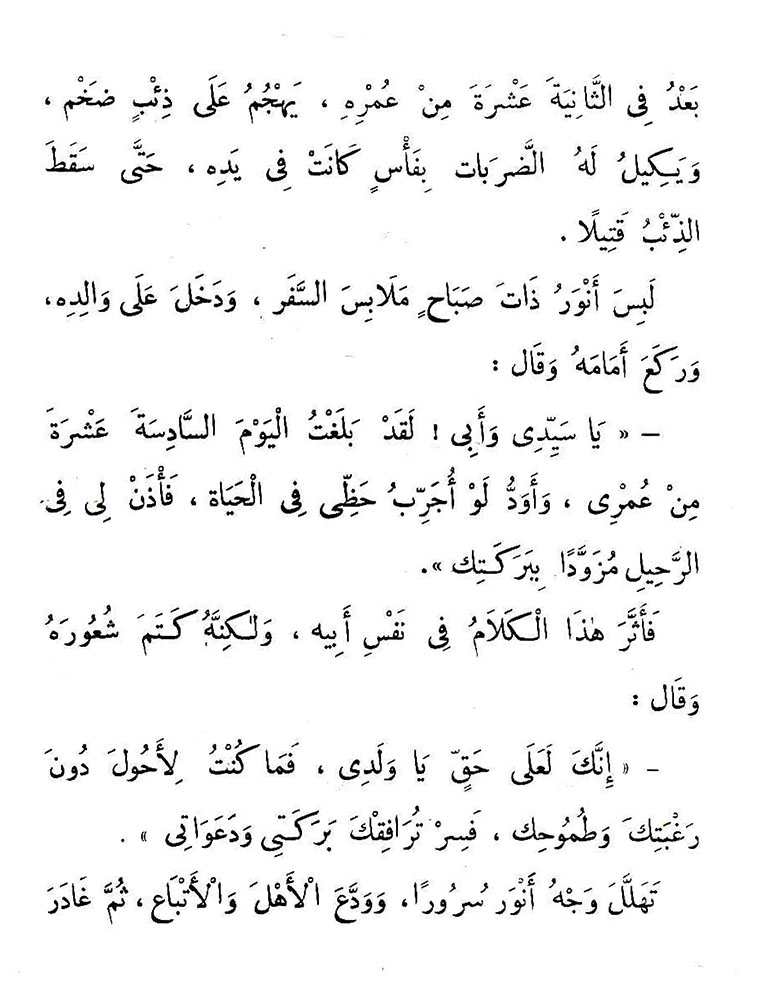 بَعْدُ فِى الثَّانِيَةَ عَشْرَةَ مِنْ عُمْرِهِ ، يَهْجُمُ عَلَى ذِئْبٍ ضَخْم ،
وَيَكِيلُ لَهُ الضَّرَبَات بِفَأْسٍ كَانَتْ فِى يَدِه ، حَتَّى سَقَطَ
الذِّئْبُ قَتِيلًا .
لَبِسَ أَنْوَرُ ذَاتَ صَبَاحٍ مَلَابِسَ السَّفَر ، وَدَخَلَ عَلَى وَالِدِه،
وَرَكَعَ أَمَامَهُ وَقَال :
— « يَا سَيِّدِى وَأَبِى ! لَقَدْ بَلَغْتُ الْيَوْمَ السَّادِسَةَ عَشْرَةَ
مِنْ عُمْرِى ، وَأَوَدُّ لَوْ أُجَرِّبُ حَظِّى فِى الْحَيَاة ، فَأْذَنْ لِى فِى
الرَّحِيلِ مُزَوَّدًا بِبَرَكَتِك ».
فَأَثَّرَ هٰذَا الْكَلَامُ فِى نَفْسِ أَبِيه ، وَلٰكِنَّهُ كَتَمَ شُعُورَهُ
وَقَال :
– « إِنَّكَ لَعَلَى حَقٍّ يَا وَلَدِى ، فَمَا كُنْتُ لِأَحُولَ دُونَ
رَغْبَتِكَ وَطُمُوحِك ، فَسِرْ تُرَافِقْكَ بَرَكَتِى وَدَعَوَاتِى » .
تَهَلَّلَ وَجْهُ أَنْوَر سُرُورًا، وَوَدَّعَ الْأَهْلَ وَالْأَتْبَاع ، ثُمَّ غَادَرَ